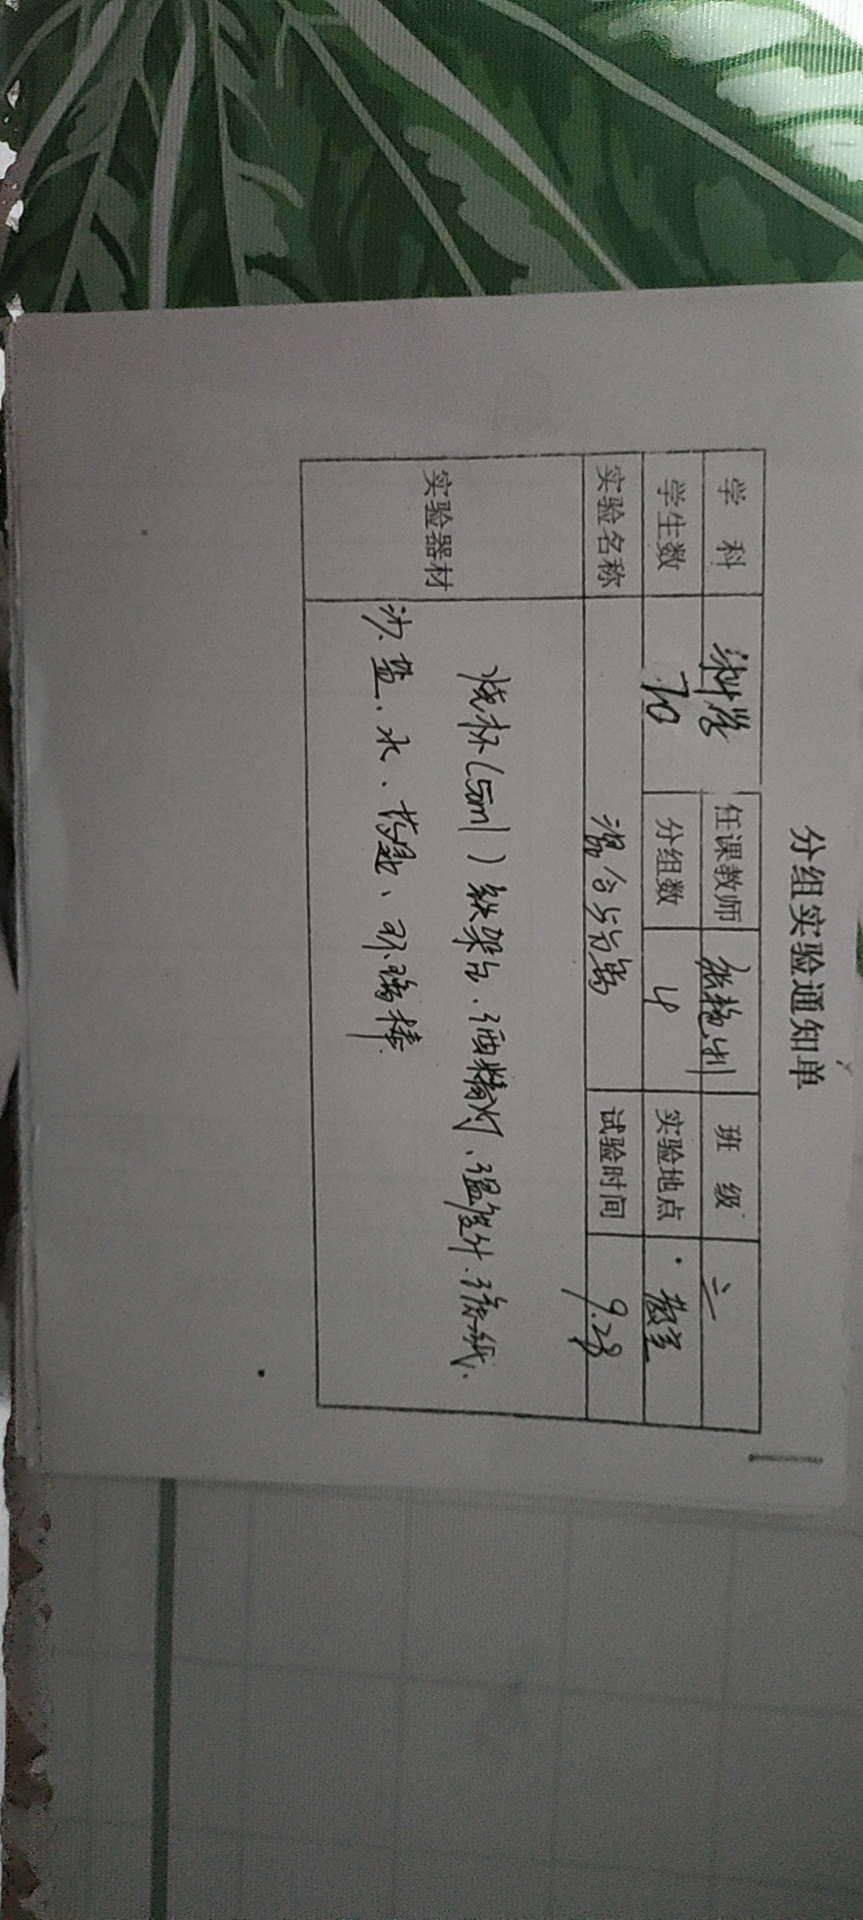 分组实验通知单
学 科 科学 任课教师 班 级 六
学生数 70 分组数 4 实验地点 教室
实验名称 混合与分离 试验时间 9.28
实验器材 烧杯(50ml)铁架台、酒精灯、温度计、滤纸、
沙、盐、水、药匙、玻璃棒